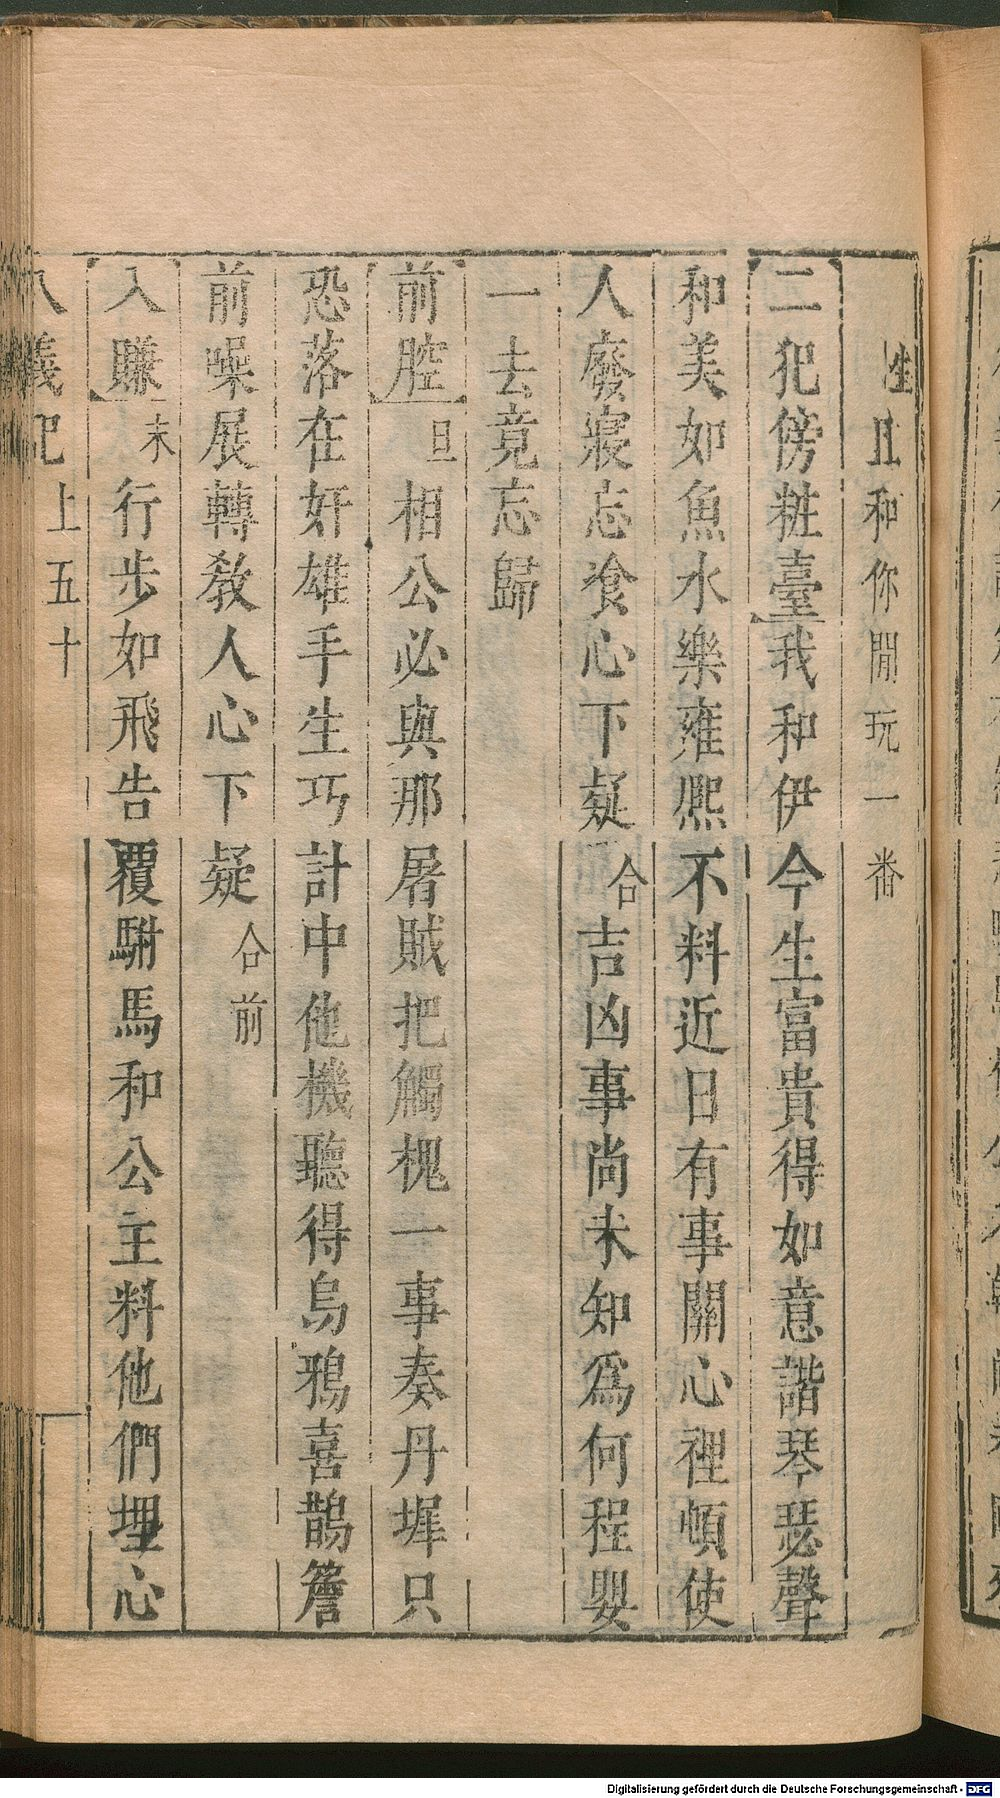 性且和你閒玩一番
二犯傍粧臺我和伊今生富貴得如意諧琴瑟聲
和美如魚水樂雍熈不料近日有事關心裡頓使
人廢寢忘飡心下疑合吉凶事尚未知爲何程嬰
一去竟忘歸
前腔旦相公必與那屠賊把觸槐一事奏丹墀只
恐落在奸雄手生巧計中他機聽得烏鴉喜鵲簷
前噪展轉敎人心下疑合前
入賺末行步如飛告覆駙馬和公主料他們埋心
八義記上五十
Digitalisierung gefördert durch die Deutsche Forschungsgemeinschaft - DFG